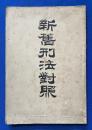 新舊刑法對照